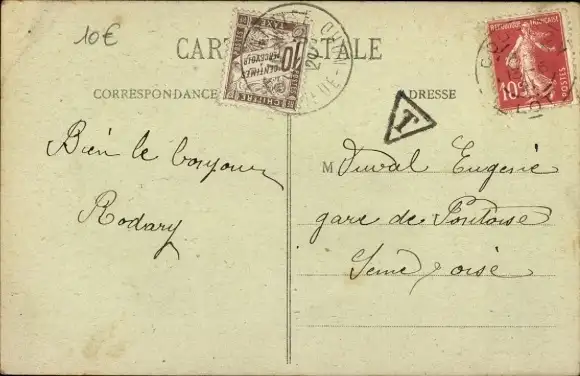 10€
CARTE POSTALE
CORRESPONDANCE
ADRESSE
10
CENTIMES
A PERCEVOIR
CHIFFRE
TAXE
RÉPUBLIQUE FRANÇAISE
10c
POSTES
T
Bien le bonjour
Rodary
M Duval Eugenie
gare de Pontoise
Seine & oise